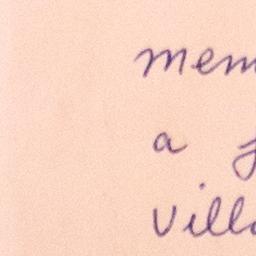 mem
a
villa